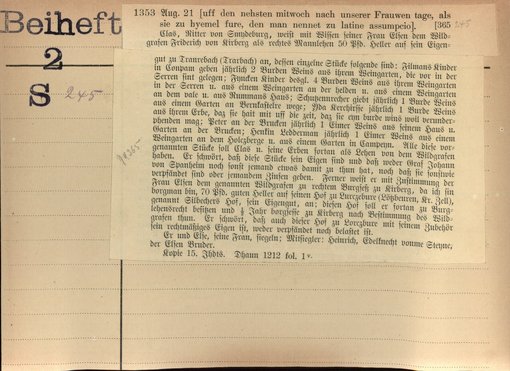 Beiheft
2
S 245
1353 Aug. 21 [uff den nehsten mitwoch nach unserer Frauwen tage, als
sie zu hyemel fure, den man nennet zu latine assumpcio]. [365 245
Clas, Ritter von Smydeburg, weist mit Wissen seiner Frau Elsen dem Wild-
grafen Frederich von Kirberg als rechtes Mannlehen 50 Pfd. Heller auf sein Eigen-
gut zu Tranrebach (Trarbach) an, dessen einzelne Stücke folgende sind: Filmans Kinder
in Conpan geben jährlich 2 Burden Weins aus ihrem Weingarten, die vor in der
Serren sint gelegen; Fyncken Kinder desgl. 4 Burden Weins aus ihrem Weingarten
in der Serren u. aus einem Weingarten an der helden u. aus einem Weingarten
an dem vale u. aus Nummans Haus; Schutzenrecher giebt jährlich 1 Burde Weins
aus einem Garten an Bernkasteler wege; Pda Kerchirsse jährlich 1 Burde Weins
aus ihrem Erbe, daz sie hait miu uff die zeit, daz sie eyn burde wins woil verunder-
phenden mag; Peter an der Brucken jährlich 1 Eimer Weins aus seinem Haus u.
Garten an der Brucken; Henkin Ledderman jährlich 1 Eimer Weins aus einem
Weingarten an dem Holzberge u. aus einem Garten in Campeyn. Alle diese vor-
genannten Stücke soll Clas u. seine Erben fortan als Lehen von dem Wildgrafen
haben. Er schwört, daß diese Stücke sein Eigen sind und daß weder Graf Johann
von Spanheim noch sonst jemand etwas damit zu thun hat, noch daß sie sonstwie
verpfändet sind oder jemandem Zinsen geben. Ferner weist er mit Zustimmung der
Frau Elsen dem genannten Wildgrafen zu rechtem Burgseß zu Kirberg, da ich sin
borgman bin, 70 Pfd. guten Heller auf seinen Hof zu Lurczebure (Lötzbeuren, Kr. Zell),
genannt Silbechers Hof, sein Eigengut, an; diesen Hof soll er fortan zu Burg-
lehensrecht besitzen und ¼ Jahr borgsesse zu Kirberg nach Bestimmung des Wild-
grafen thun. Er schwört, daß auch dieser Hof zu Lorczbure mit seinem Zubehör
sein rechtmäßiges Eigen ist, weder verpfändet noch belastet ist.
Er und Else, seine Frau, siegeln; Mitsiegler: Heinrich, Edelknecht vonme Steyne,
der Elsen Bruder.
Kopie 15. Jhdts. Dhaun 1212 fol. 1v.